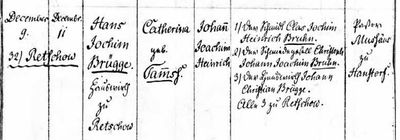 December December Hans Catherina Johann 1) Der Schmidt Clas Jochim Pastor
9. 11 Jochim geb. Joachim Heinrich Bruhn. Mussäus
32) Retschow Brügge Tamms. Heinrich 2) Der Christoph zu
zu Johann Joachim Bruhn. Hanstorf.
Retschow 3) Der Johann
Christian Brügge.
Alle 3 zu Retschow.